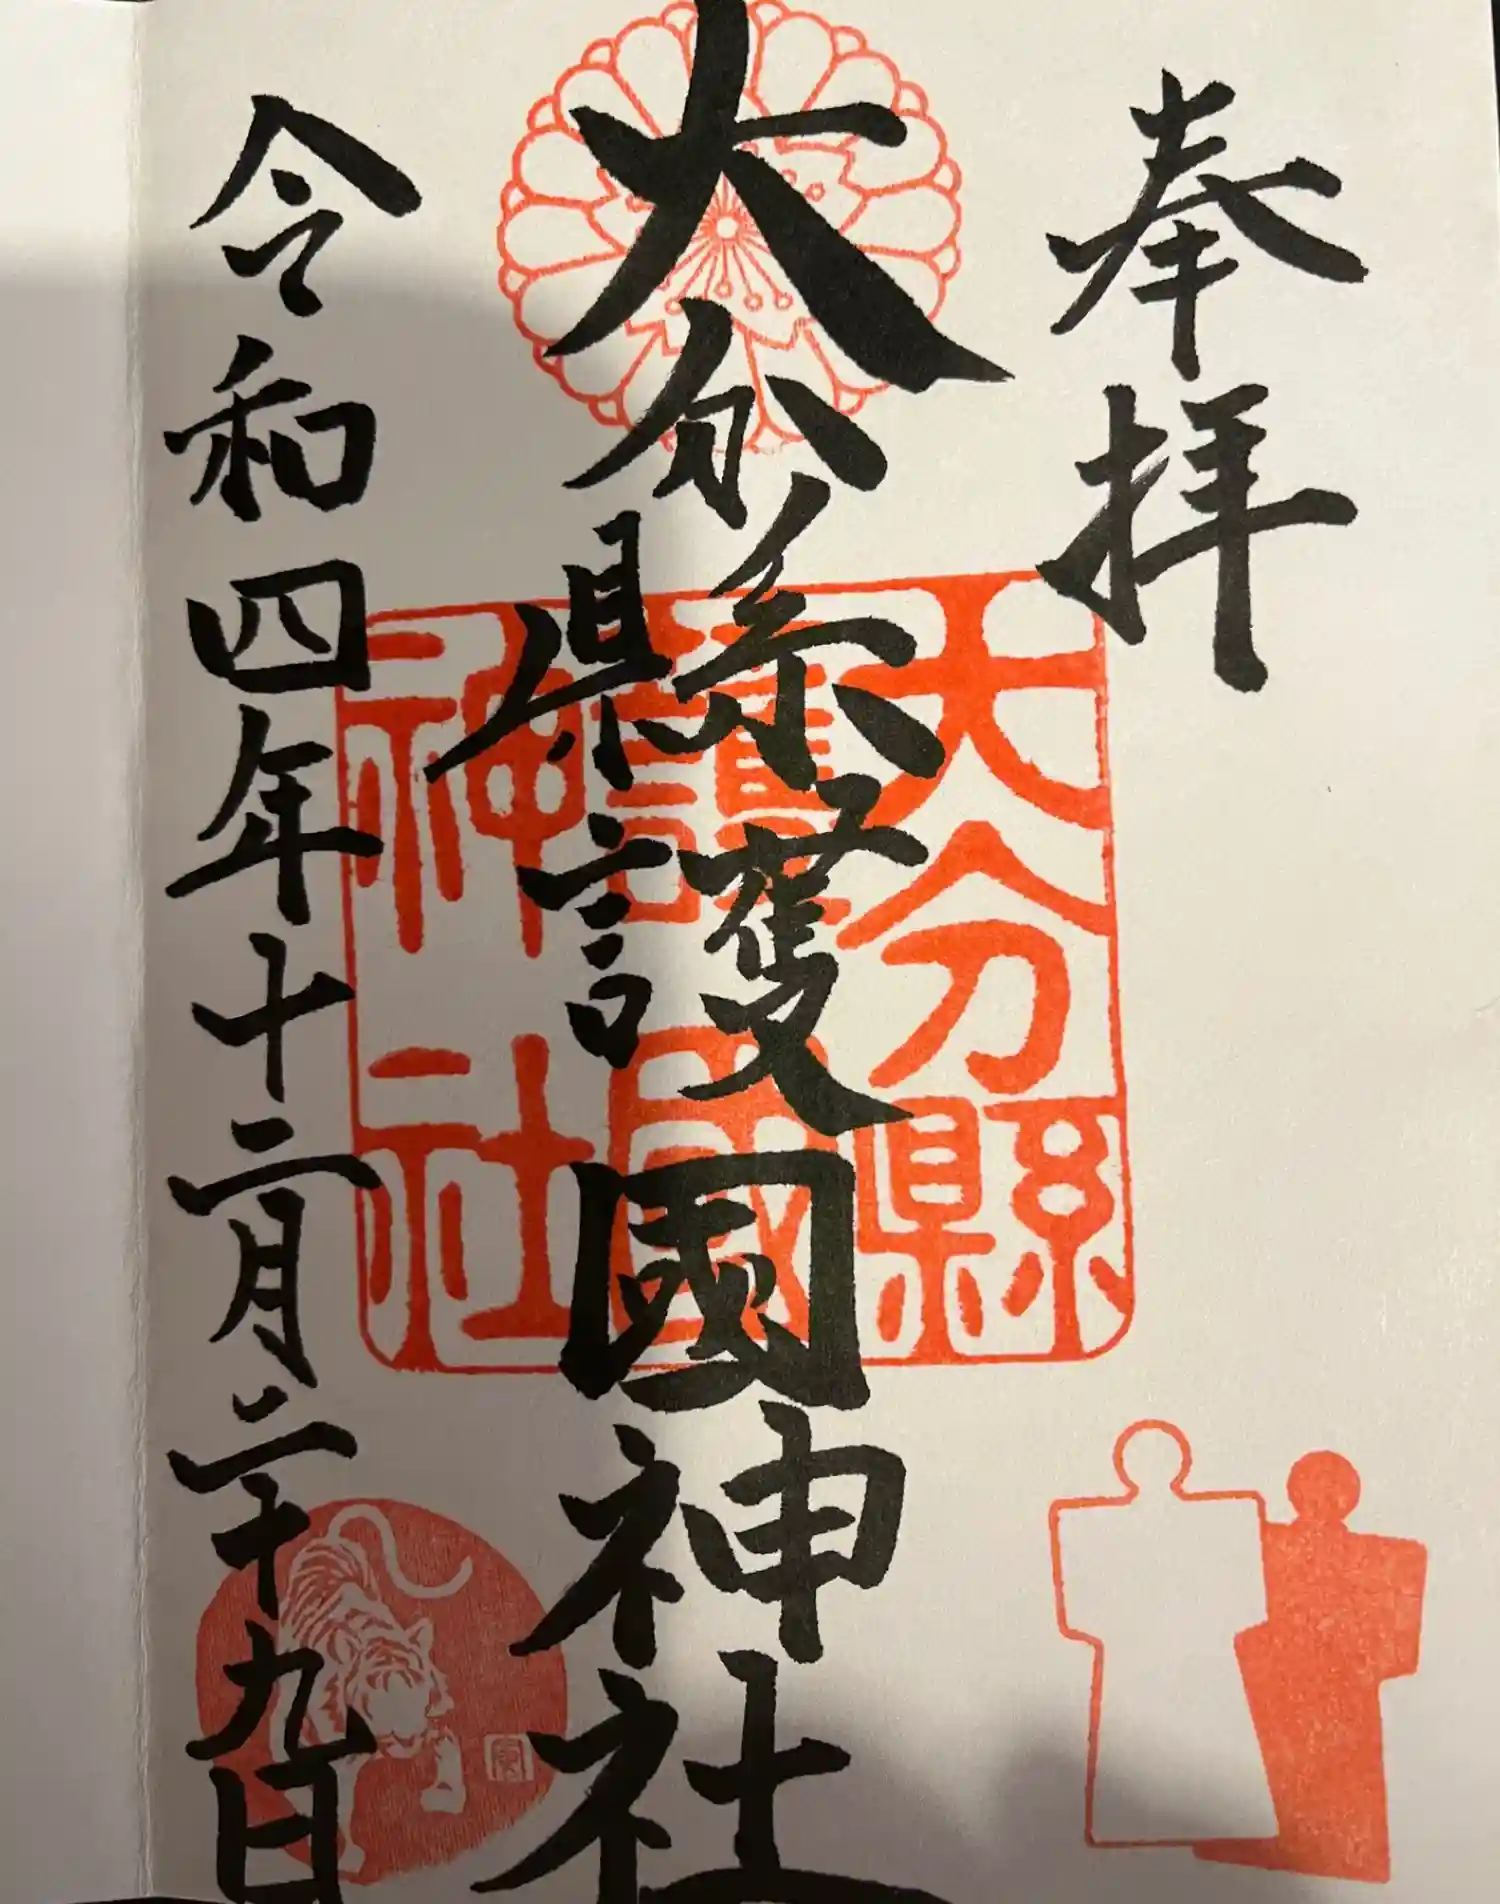 奉拝
大分縣護國神社
令和四年十二月二十九日
大分縣
護國
神社
寅